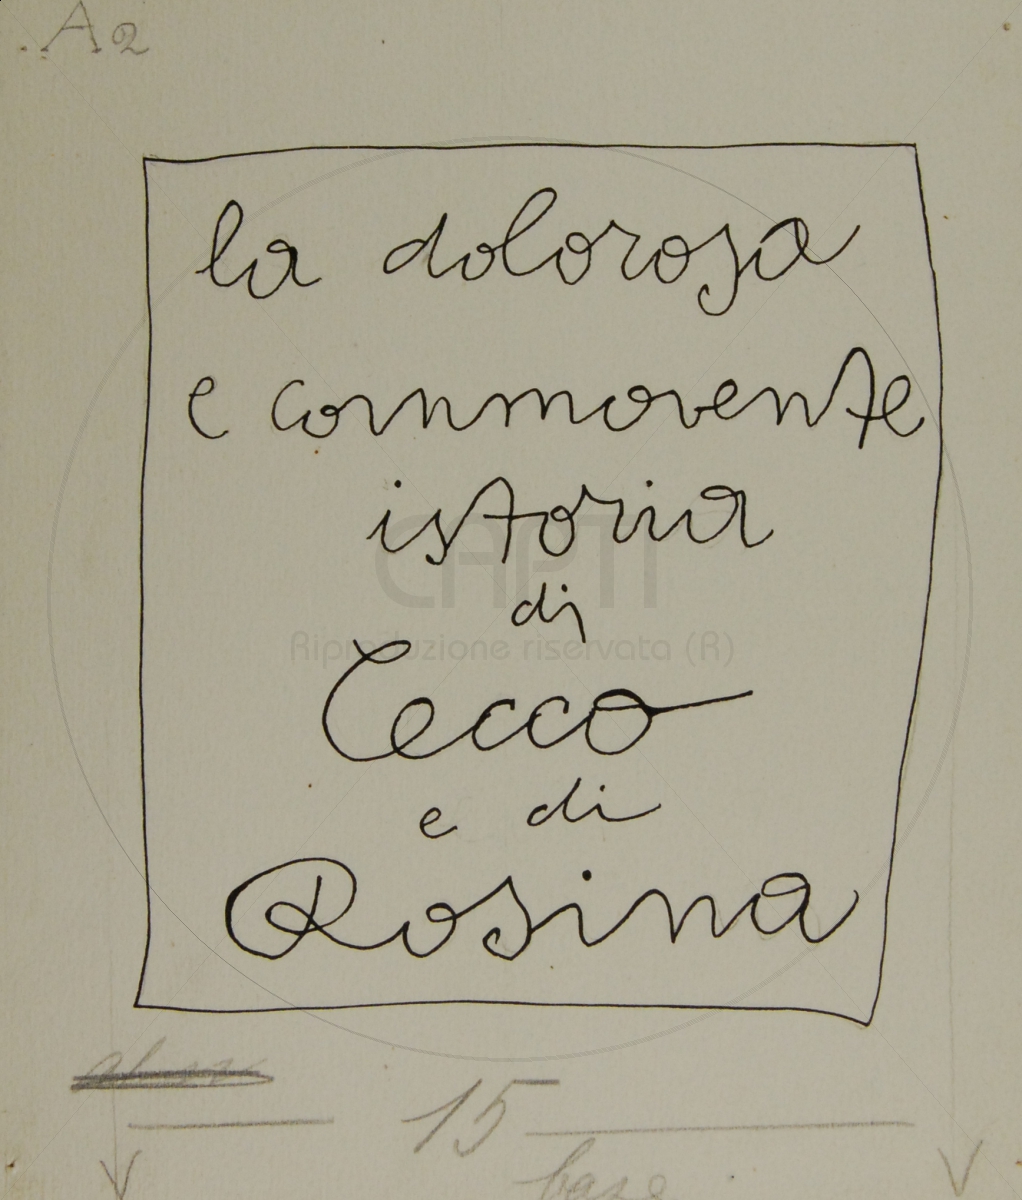 A2
la dolorosa
e commovente
istoria
di
CAPTI
Riproduzione riservata (R)
Cecco
e di
Rosina
15
base